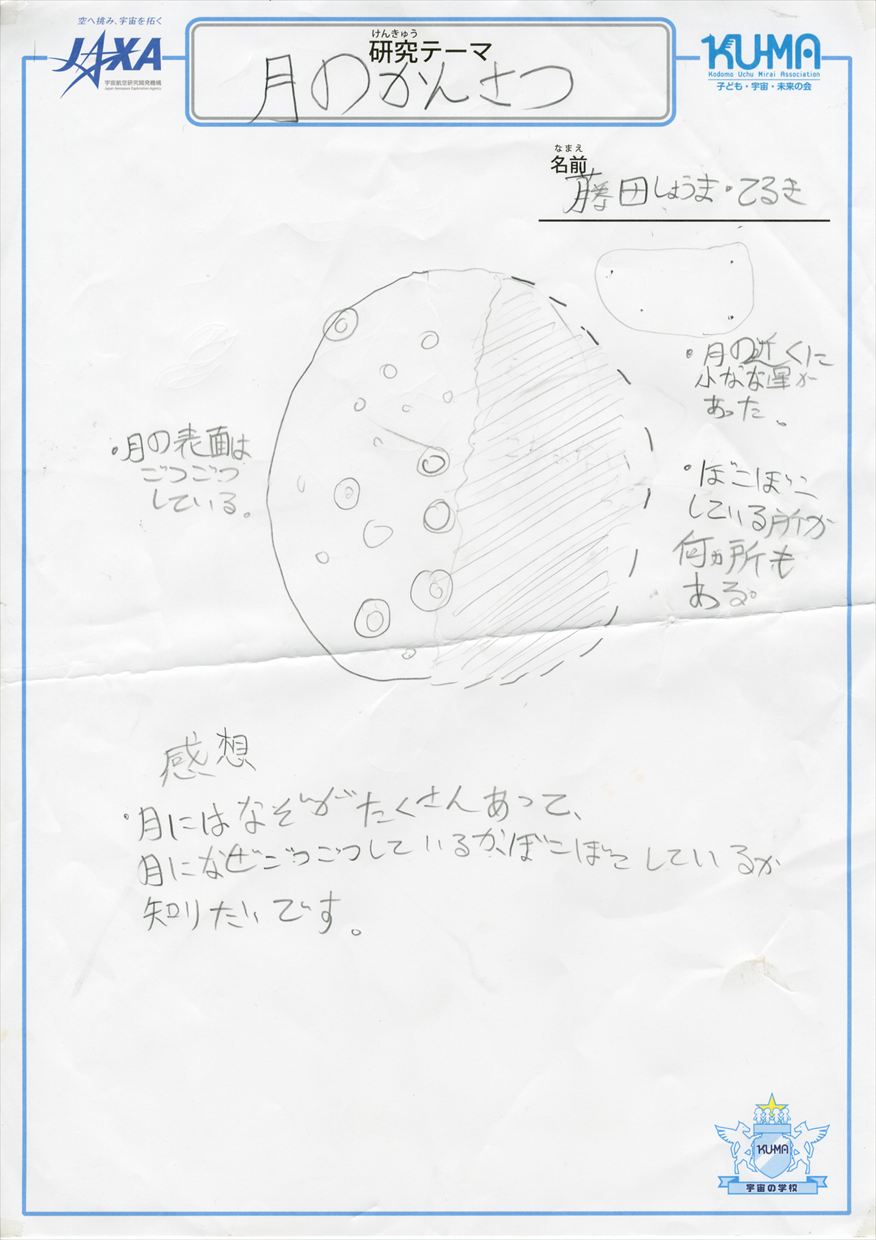 空へ挑み、宇宙を拓く
JAXA
宇宙航空研究開発機構
Japan Aerospace Exploration Agency
けんきゅう
研究テーマ
月のかんさつ
KU-MA
Kodomo Uchu Mirai Association
子ども・宇宙・未来の会
なまえ
名前
藤田しょうま・てるき
・月の近くに
小なな星が
あった。
・月の表面は
ごつごつ
している。
・ぼこぼこ
している所が
何ヵ所も
ある。
感想
・月にはなぞがたくさんあって、
月になぜごつごつしているかぼこぼこしているか
知りたいです。
KU-MA
宇宙の学校